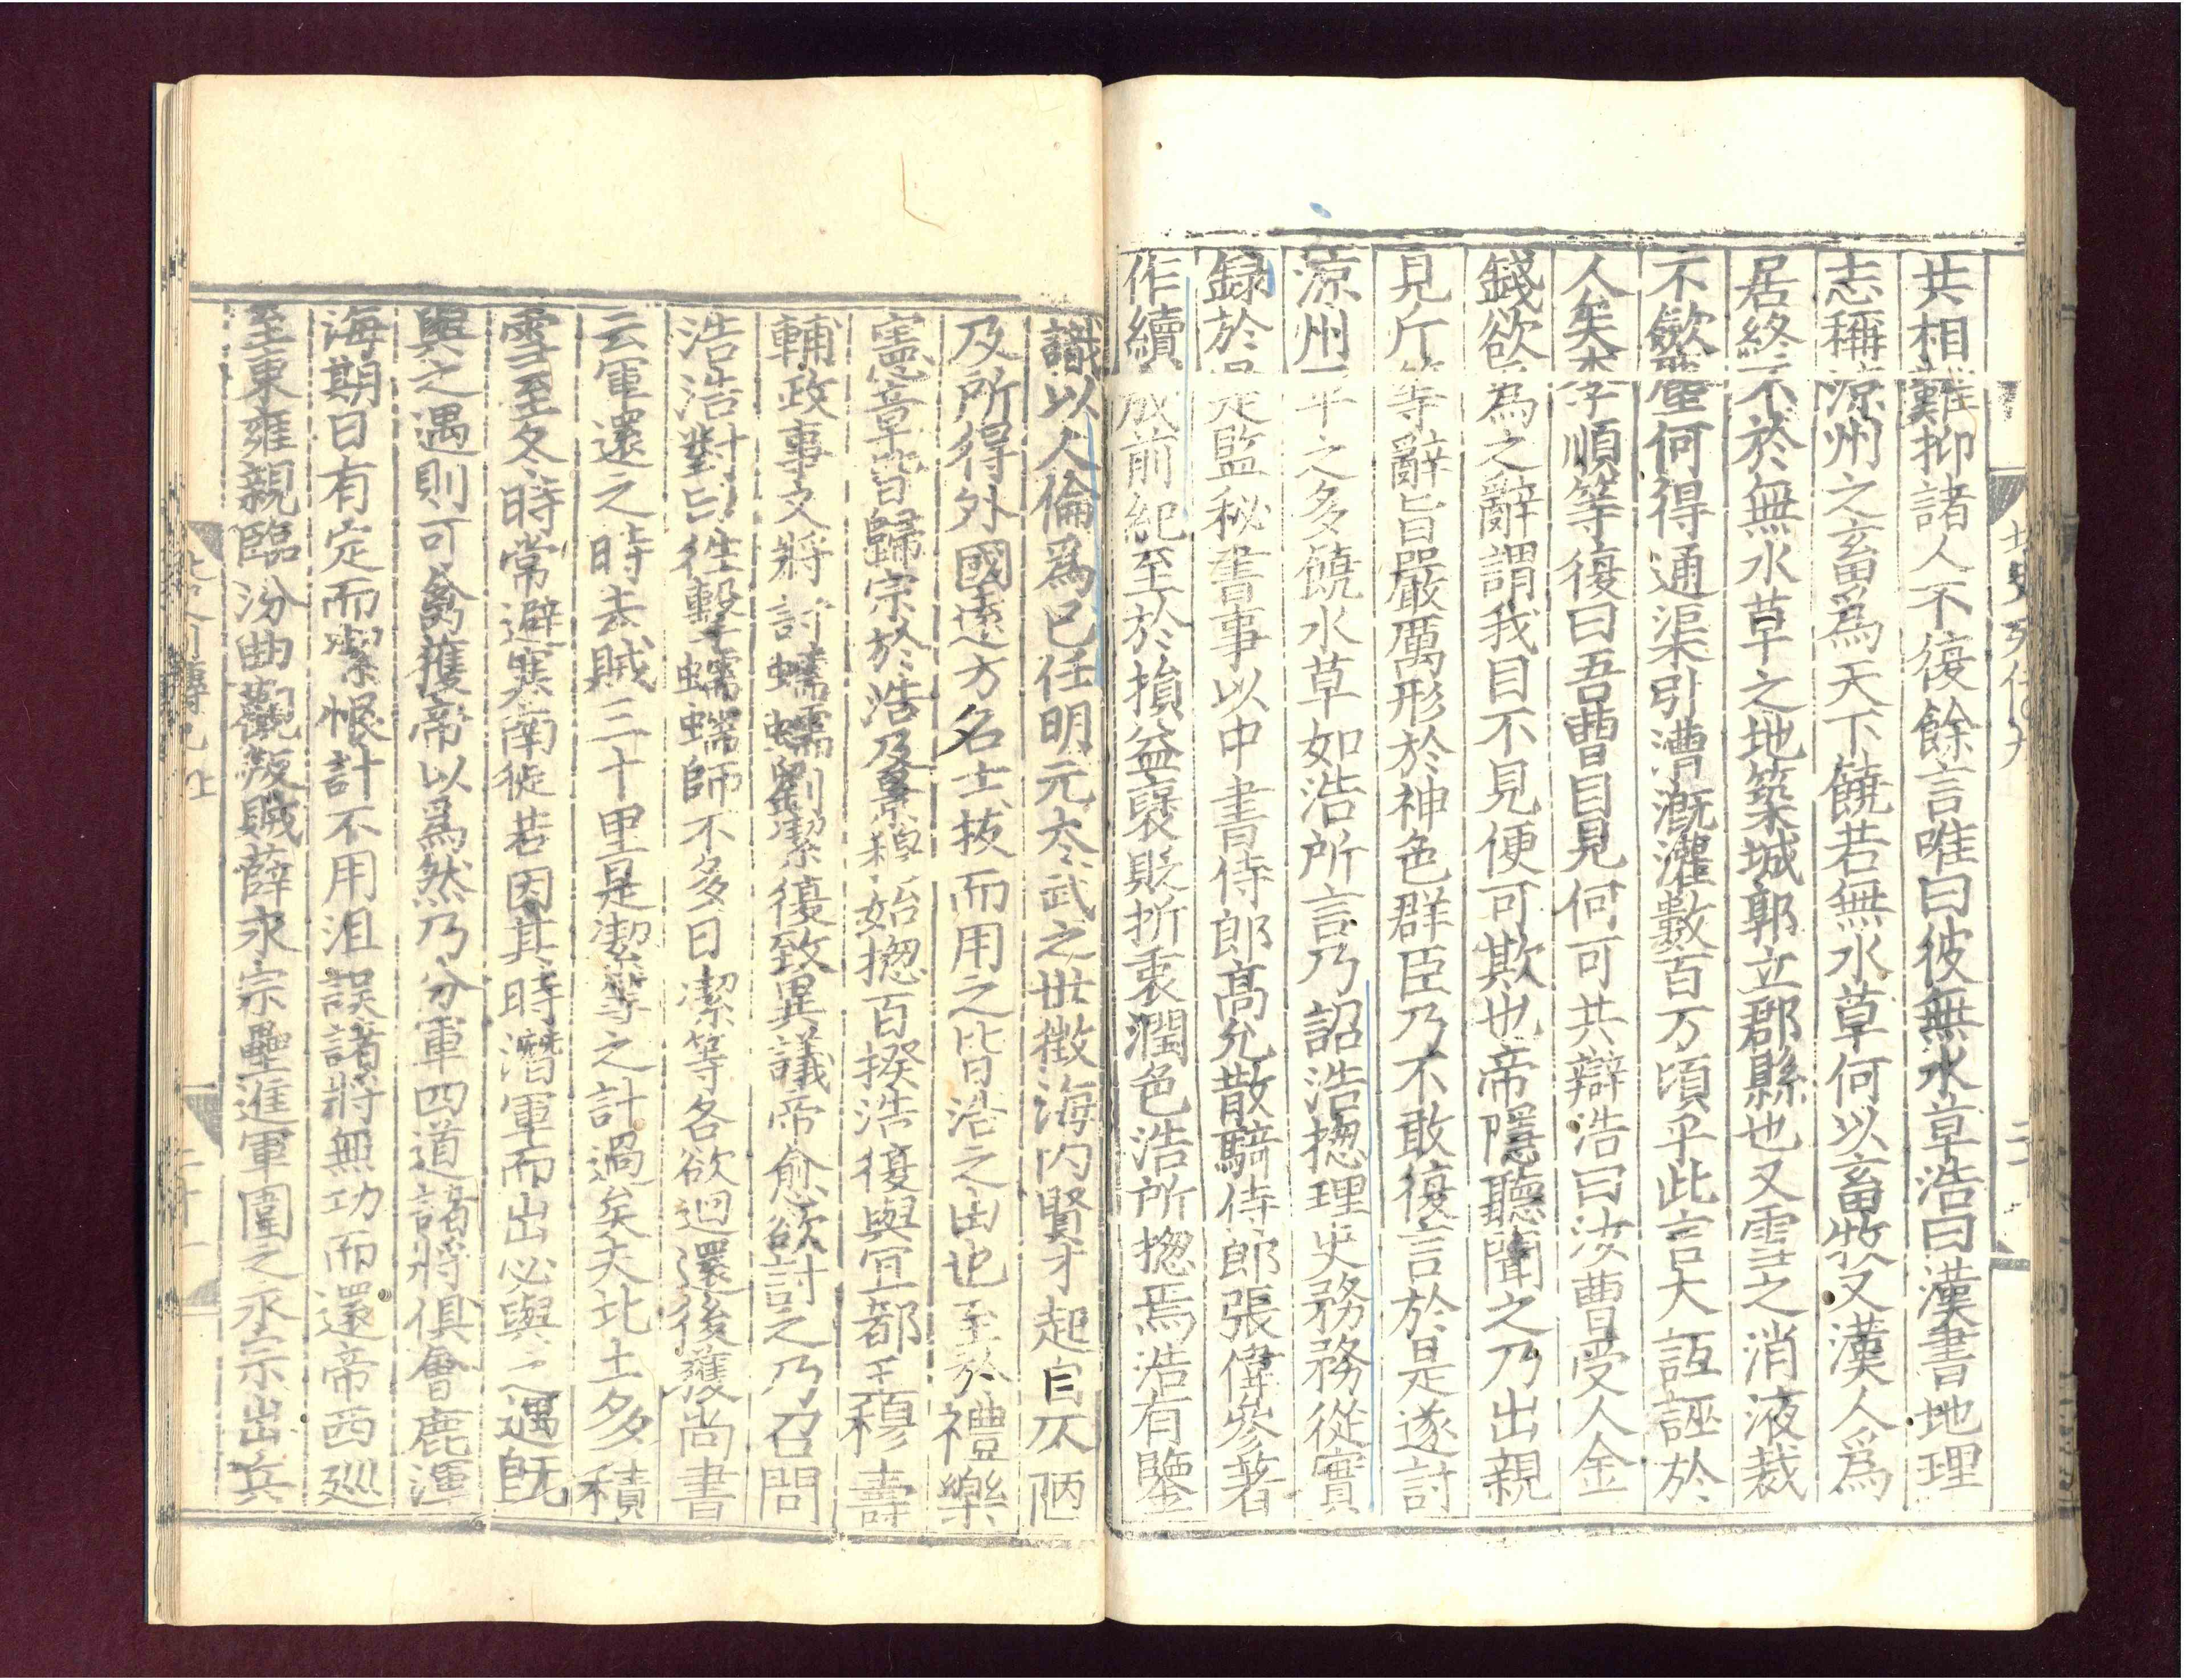 共相難抑諸人不復餘言唯曰彼無水草浩曰漢書地理
志稱涼州之畜爲天下饒若無水草何以畜牧又漢人爲
居終不於無水草之地築城郭立郡縣也又雪之消液裁
不斂塵何得通渠引漕漑灌數百万頃乎此言大詆誣於
人矣李順等復曰吾曹目見何可共辯浩曰汝曹受人金
錢欲爲之辭謂我目不見便可欺也帝隱聽聞之乃出親
見斤等辭旨嚴厲形於神色群臣乃不敢復言於是遂討
涼州平之多饒水草如浩所言乃詔浩揔理史務務從實
録於是監秘書事以中書侍郎髙允散騎侍郎張偉參著
作續成前紀至於損益襃貶折衷潤色浩所揔焉浩有鑒
識以人倫爲己任明元太武之世徵海内賢才起自仄陋
及所得外國遠方名士拔而用之皆浩之由也至於禮樂
憲章皆歸宗於浩及景穆始揔百揆浩復與冝都王穆壽
輔政事又將討蠕蠕劉潔復致異議帝愈欲討之乃召問
浩浩對曰往擊蠕蠕師不多日潔等各欲迴還後獲尚書
云軍還之時去賊三十里是潔等之計過矣夫北土多積
雪至冬時常避寒南徙若因其時潛軍而出必與之遇旣
與之遇則可禽獲帝以爲然乃分軍四道諸將俱會鹿渾
海期日有定而潔恨計不用沮誤諸將無功而還帝西廵
至東雍親臨汾曲觀叛賊薛永宗壘進軍圍之永宗出兵